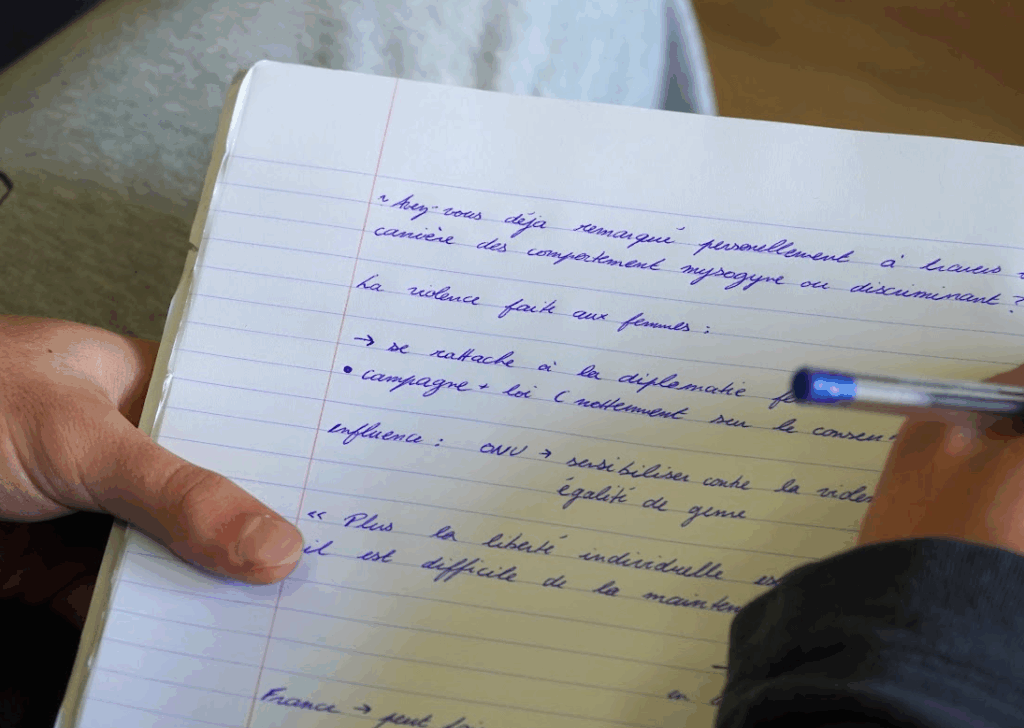 ~ Avez-vous déja remarqué personellement à travers
carrière des comportement mysogyne ou discriminant ?
La violence faite aux femmes :
→ se rattache à la diplomatie
• campagne + loi ( nottemment sur le
influence : ONU → sensibiliser contre la
égalité de genre
" Plus la liberté individuelle
il est difficile de la
en
France → peut